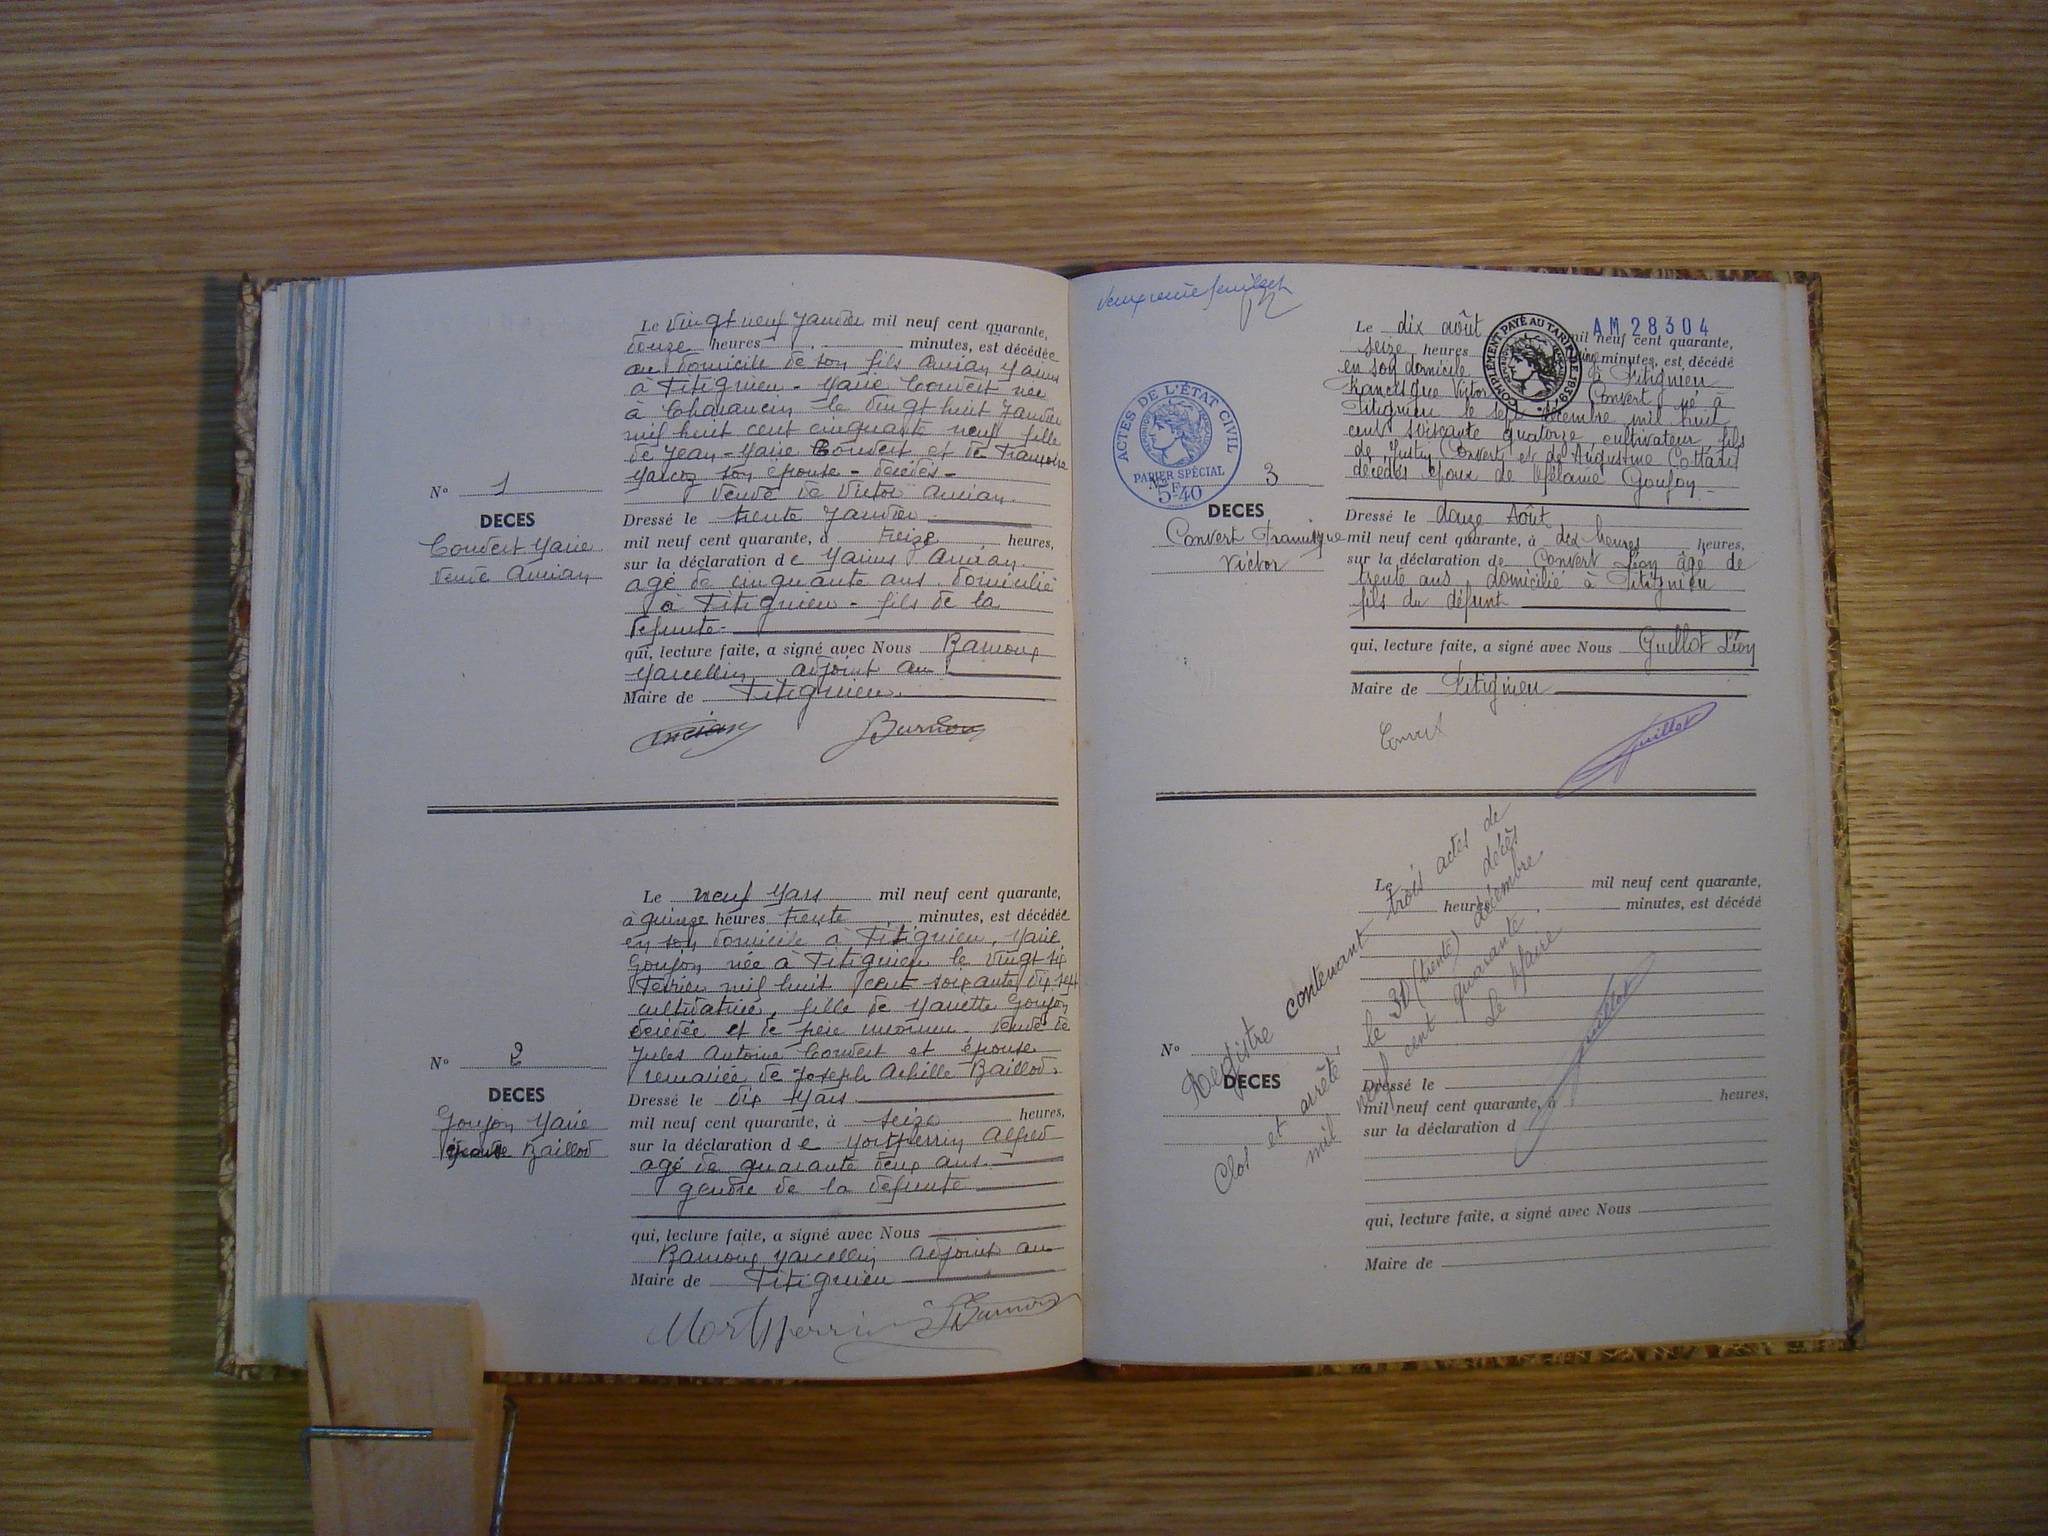 Le vingt neuf Janvier mil neuf cent quarante,
douze heures minutes, est décédée
au domicile de son fils Ancian Marius
à Pitignieu - Marie Convert née
à Chavancin le vingt huit Janvier
mil huit cent cinquante neuf fille
de Jean-Marie Convert et de Françoise
son épouse - décédés -
Veuve de Victor Ancian.
N° 1
DECES
Convert Marie
Veuve Ancian
Dressé le trente Janvier
mil neuf cent quarante, à treize heures,
sur la déclaration de Marius Ancian.
agé de cinquante ans domicilié
à Pitignieu - fils de la
défunte.
qui, lecture faite, a signé avec Nous
Marcellin adjoint au
Maire de Pitignieu.
Ancian
Le neuf Mars mil neuf cent quarante,
à quinze heures trente minutes, est décédée
en son domicile à Pitignieu, Marie
Goujon née à Pitignieu le vingt six
Février mil huit cent soixante dix sept
cultivatrice, fille de Mariette Goujon
décédée et de père inconnu. Veuve de
Jules Antoine Convert et épouse
remariée de Joseph Achille Baillod.
N° 2
DECES
Goujon Marie
Baillod
Dressé le dix Mars
mil neuf cent quarante, à seize heures,
sur la déclaration de Mortperrin Alfred
agé de quarante deux ans.
gendre de la défunte
qui, lecture faite, a signé avec Nous
Marcellin adjoint au
Maire de Pitignieu
Mortperrin
AM 28304
COMPLÉMENT PAYÉ AU TARIF DE 1939
ACTES DE L'ÉTAT CIVIL
PAPIER SPÉCIAL
5F40
Le dix août mil neuf cent quarante,
seize heures cinq minutes, est décédé
en son domicile à Pitignieu
Francisque Victor Convert né à
Pitignieu le sept décembre mil huit
cent soixante quatorze cultivateur fils
de Justin Convert et de Augustine Cottarel
décédés époux de Mélanie Goujon
N° 3
DECES
Convert Francisque
Victor
Dressé le douze Août
mil neuf cent quarante, à dix heures heures,
sur la déclaration de Convert Léon âgé de
trente ans domicilié à Pitignieu
fils du défunt
qui, lecture faite, a signé avec Nous Guillot Léon
Maire de Pitignieu
Convert
Guillot
Le mil neuf cent quarante,
heures minutes, est décédé
N°
DECES
Dressé le
mil neuf cent quarante, à heures,
sur la déclaration d
qui, lecture faite, a signé avec Nous
Maire de
Registre contenant trois actes de
décès
Clos et arrêté le 30 (trente) décembre
mil neuf cent quarante
Le Maire
Guillot